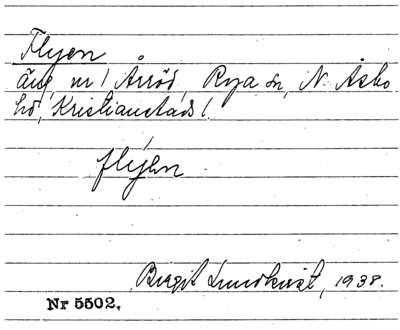 Flyen
äng nr 1 Årröd, Rya sn, N. Åsbo
hd, Kristianstads l.
flýen
Birgit Lundkvist, 1938.
Nr 5502.